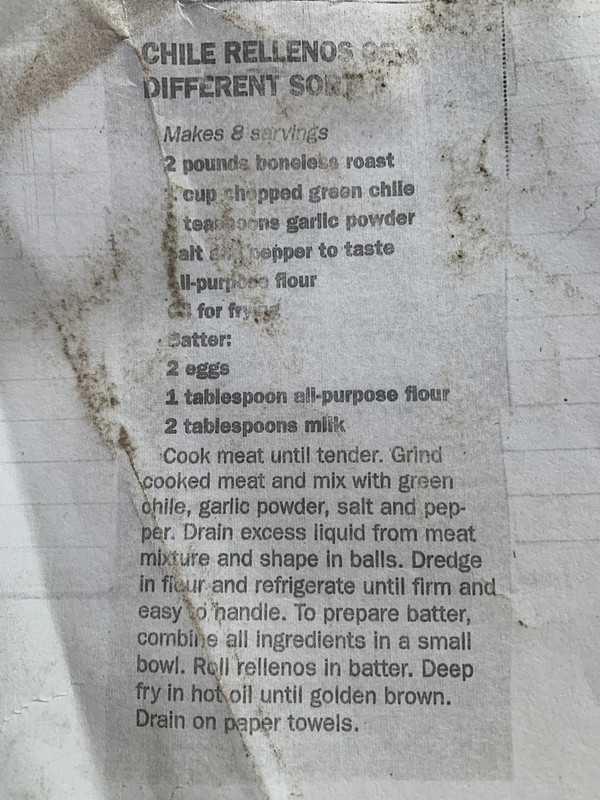 CHILE RELLENOS OF A
DIFFERENT SORT
Makes 8 servings
2 pounds boneless roast
cup chopped green chile
teaspoons garlic powder
Salt and pepper to taste
All-purpose flour
Oil for frying
Batter:
2 eggs
1 tablespoon all-purpose flour
2 tablespoons milk
Cook meat until tender. Grind
cooked meat and mix with green
chile, garlic powder, salt and pep-
per. Drain excess liquid from meat
mixture and shape in balls. Dredge
in flour and refrigerate until firm and
easy to handle. To prepare batter,
combine all ingredients in a small
bowl. Roll rellenos in batter. Deep
fry in hot oil until golden brown.
Drain on paper towels.